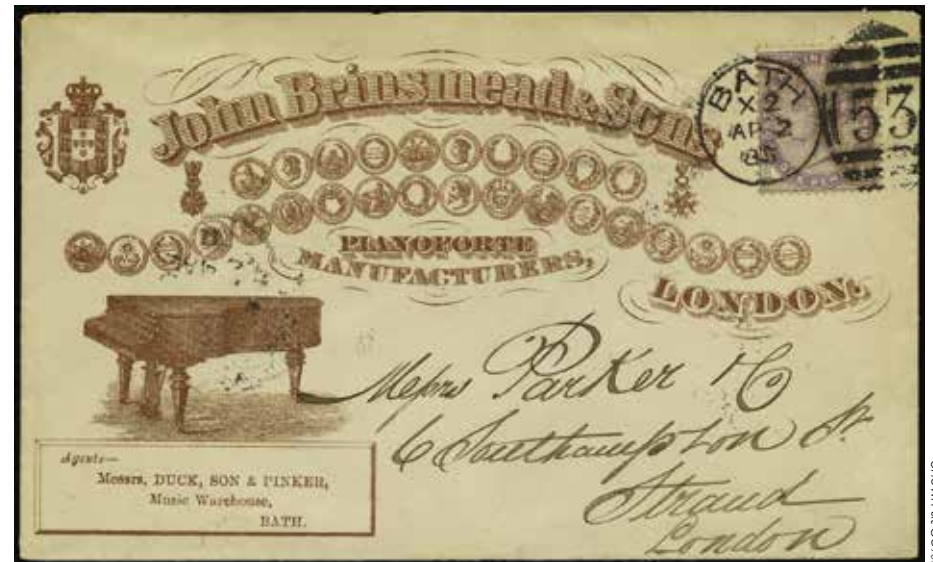 John Brinsmead & Sons
PIANOFORTE
MANUFACTURERS,
LONDON.
BATH
X 2
AP 2
53
Messrs Parker & Co
6 Southampton St
Strand
London
Agents—
Messrs, DUCK, SON & PINKER,
Music Warehouse,
BATH.